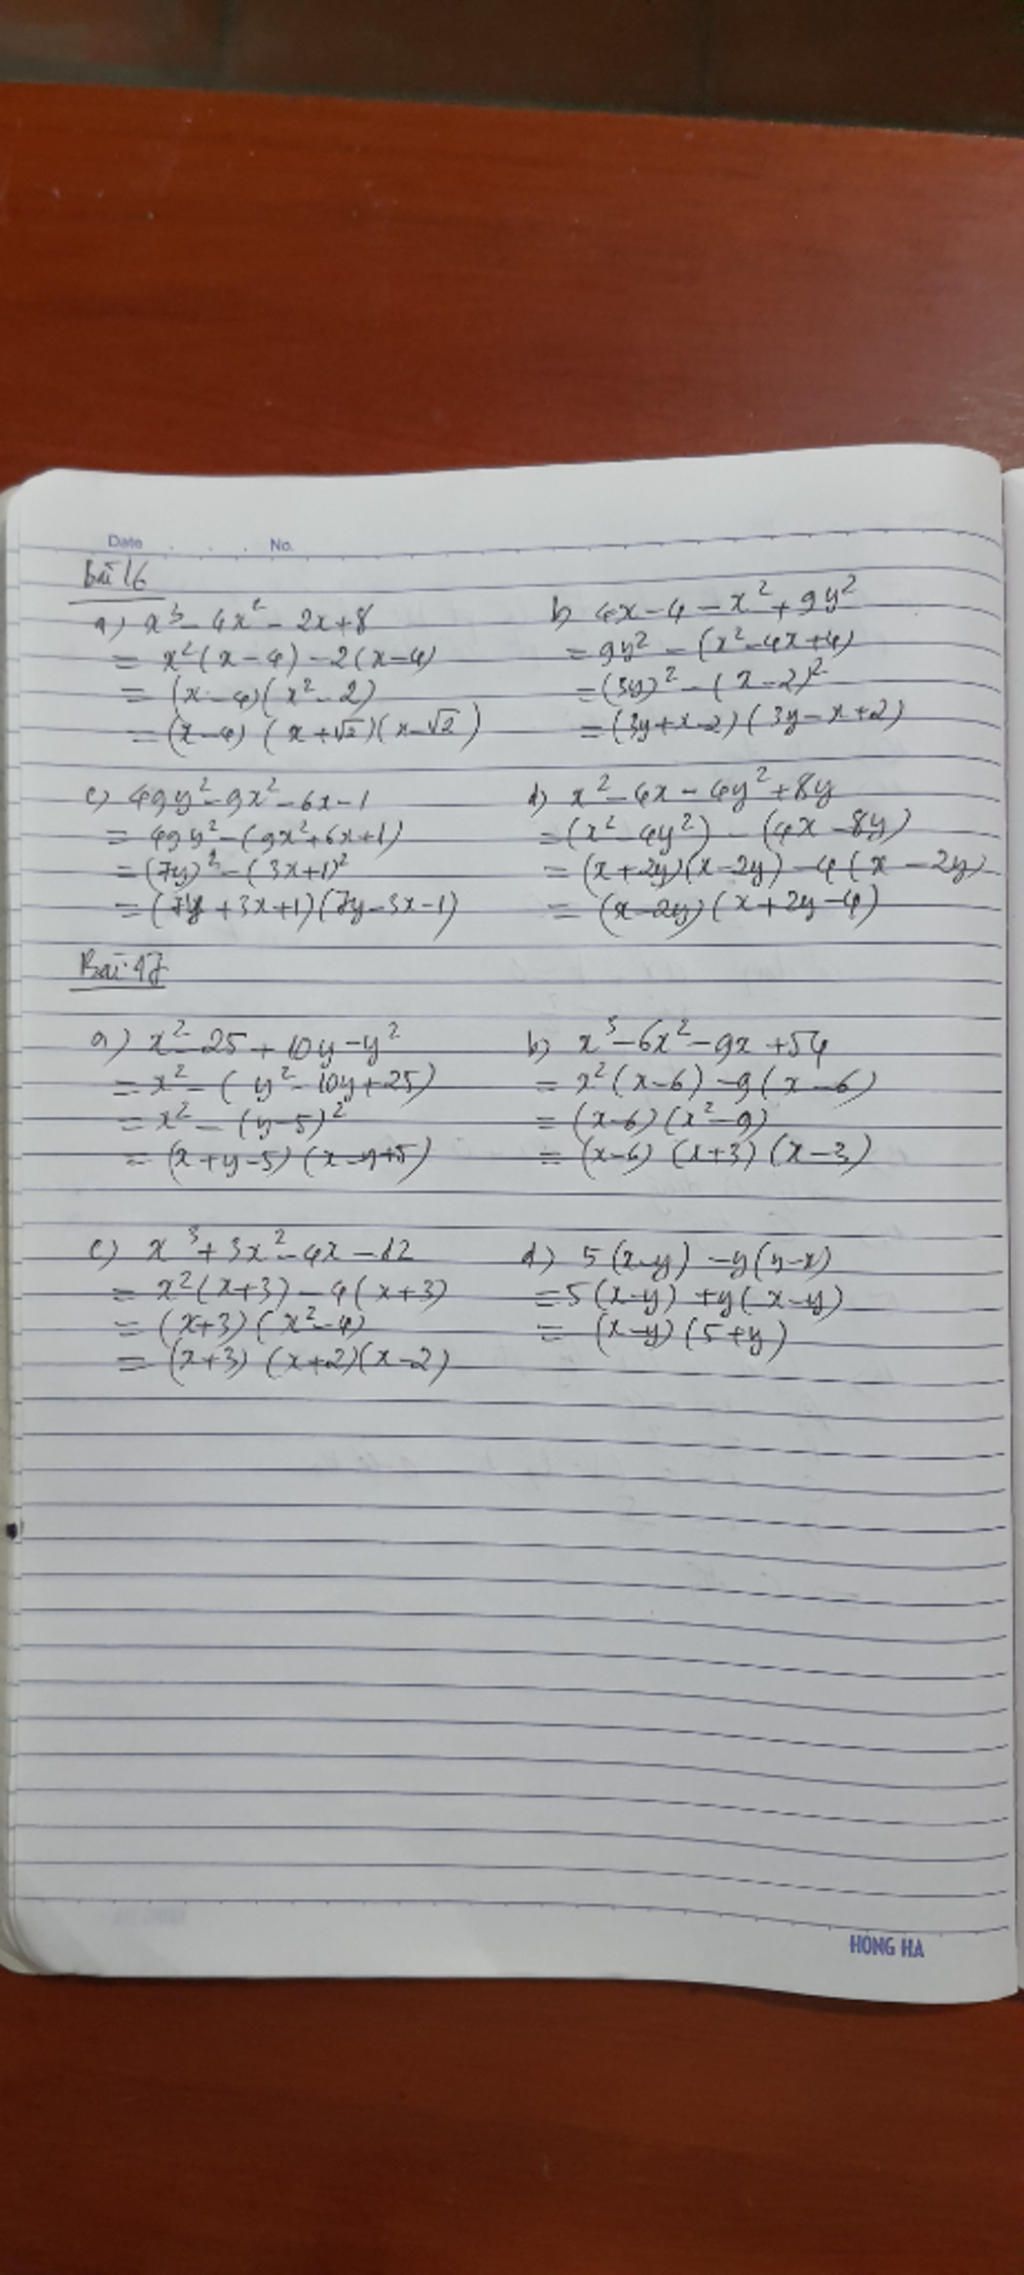 Date . . . No.
Bài 16
a) x³ - 4x² - 2x + 8
= x²(x - 4) - 2(x - 4)
= (x - 4)(x² - 2)
= (x - 4) (x + √2)(x - √2)
b) 4x - 4 - x² + 9y²
= 9y² - (x² - 4x + 4)
= (3y)² - (x - 2)²
= (3y + x - 2)(3y - x + 2)
c) 49y² - 9x² - 6x - 1
= 49y² - (9x² + 6x + 1)
= (7y)² - (3x + 1)²
= (7y + 3x + 1)(7y - 3x - 1)
d) x² - 4x - 4y² + 8y
= (x² - 4y²) - (4x - 8y)
= (x + 2y)(x - 2y) - 4(x - 2y)
= (x - 2y)(x + 2y - 4)
Bài 17
a) x² - 25 + 10y - y²
= x² - (y² - 10y + 25)
= x² - (y - 5)²
= (x + y - 5)(x - y + 5)
b) x³ - 6x² - 9x + 54
= x²(x - 6) - 9(x - 6)
= (x - 6)(x² - 9)
= (x - 6)(x + 3)(x - 3)
c) x³ + 3x² - 4x - 12
= x²(x + 3) - 4(x + 3)
= (x + 3)(x² - 4)
= (x + 3)(x + 2)(x - 2)
d) 5(x - y) - y(y - x)
= 5(x - y) + y(x - y)
= (x - y)(5 + y)
HONG HA